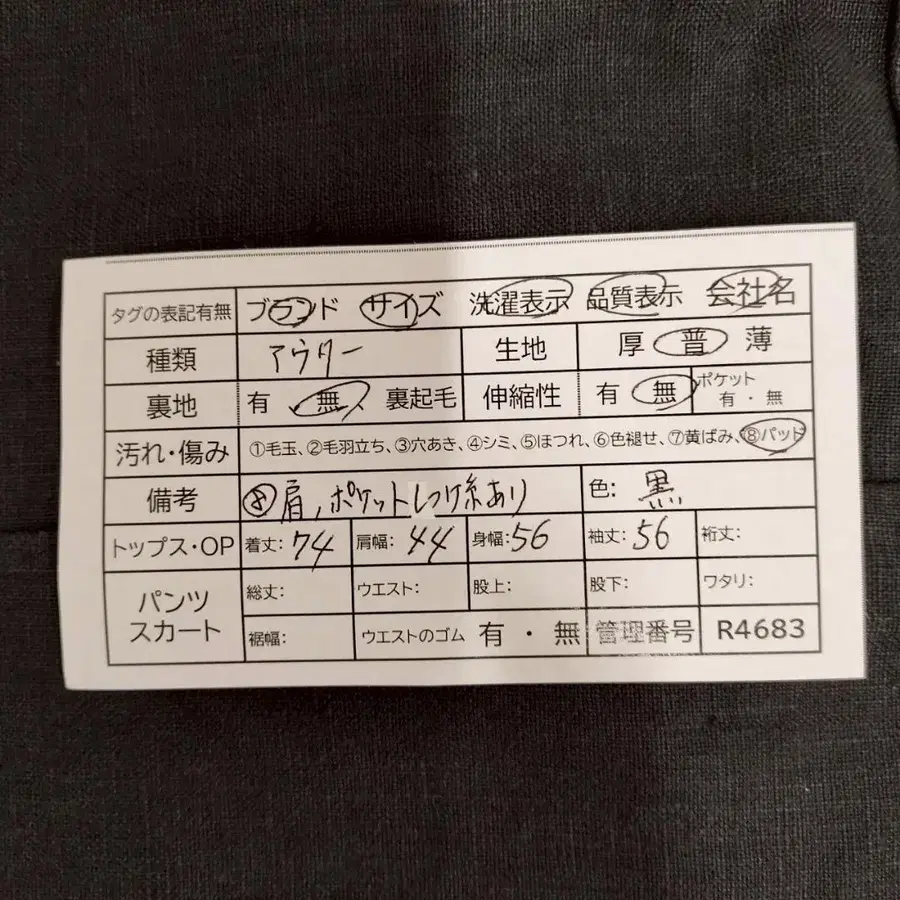 タグの表記有無 ブランド サイズ 洗濯表示 品質表示 会社名
種類 アウター 生地 厚 普 薄
裏地 有 無 裏起毛 伸縮性 有 無 ポケット 有・無
汚れ・傷み ①毛玉、②毛羽立ち、③穴あき、④シミ、⑤ほつれ、⑥色褪せ、⑦黄ばみ、⑧パッド
備考 肩,ポケットしつけ糸あり 色: 黒
トップス・OP 着丈: 74 肩幅: 44 身幅: 56 袖丈: 56 裄丈:
パンツ スカート 総丈: ウエスト: 股上: 股下: ワタリ:
裾幅: ウエストのゴム 有・無 管理番号 R4683